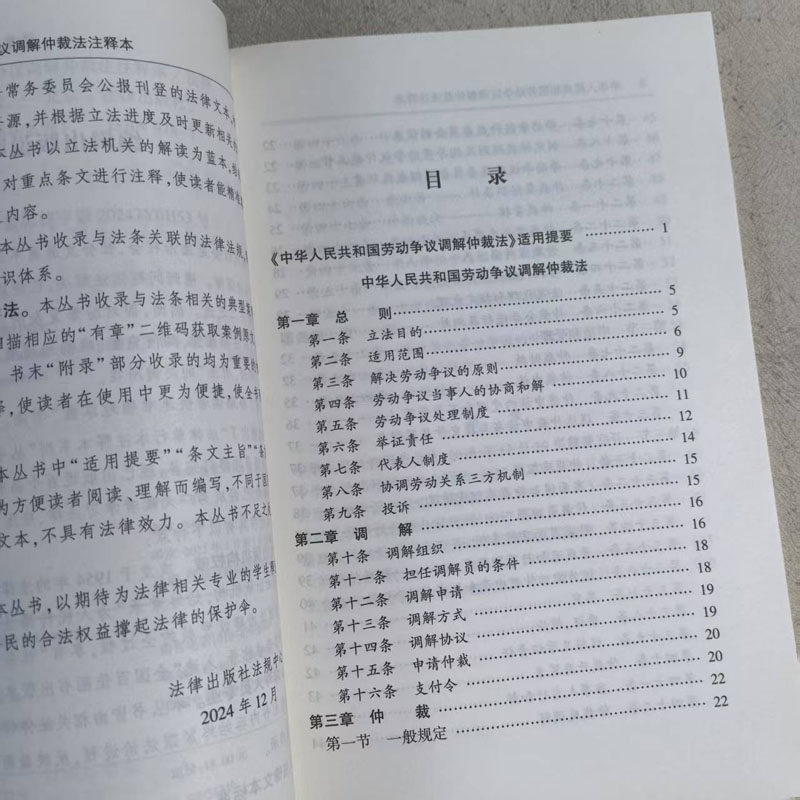 议调解仲裁法注释本
常务委员会公报刊登的法律文本,
源,并根据立法进度及时更新相关的
本丛书以立法机关的解读为蓝本,
对重点条文进行注释,使读者能精准
内容。
本丛书收录与法条关联的法律法规,
识体系。
法。本丛书收录与法条相关的典型案
扫描相应的“有章”二维码获取案例原文
书末“附录”部分收录的均为重要的
使读者在使用中更为便捷,使全书
本丛书中“适用提要”“条文主旨”“条
为方便读者阅读、理解而编写,不同于国
文本,不具有法律效力。本丛书不足之处
本丛书,以期待为法律相关专业的学生
民的合法权益撑起法律的保护伞。
法律出版社法规中心
2024年12月
目 录
《中华人民共和国劳动争议调解仲裁法》适用提要 ………… 1
中华人民共和国劳动争议调解仲裁法
第一章 总 则 ………… 5
第一条 立法目的 ………… 5
第二条 适用范围 ………… 6
第三条 解决劳动争议的原则 ………… 9
第四条 劳动争议当事人的协商和解 ………… 10
第五条 劳动争议处理制度 ………… 11
第六条 举证责任 ………… 12
第七条 代表人制度 ………… 14
第八条 协调劳动关系三方机制 ………… 15
第九条 投诉 ………… 15
第二章 调 解 ………… 16
第十条 调解组织 ………… 16
第十一条 担任调解员的条件 ………… 18
第十二条 调解申请 ………… 18
第十三条 调解方式 ………… 19
第十四条 调解协议 ………… 19
第十五条 申请仲裁 ………… 20
第十六条 支付令 ………… 20
第三章 仲 裁 ………… 22
第一节 一般规定 ………… 22